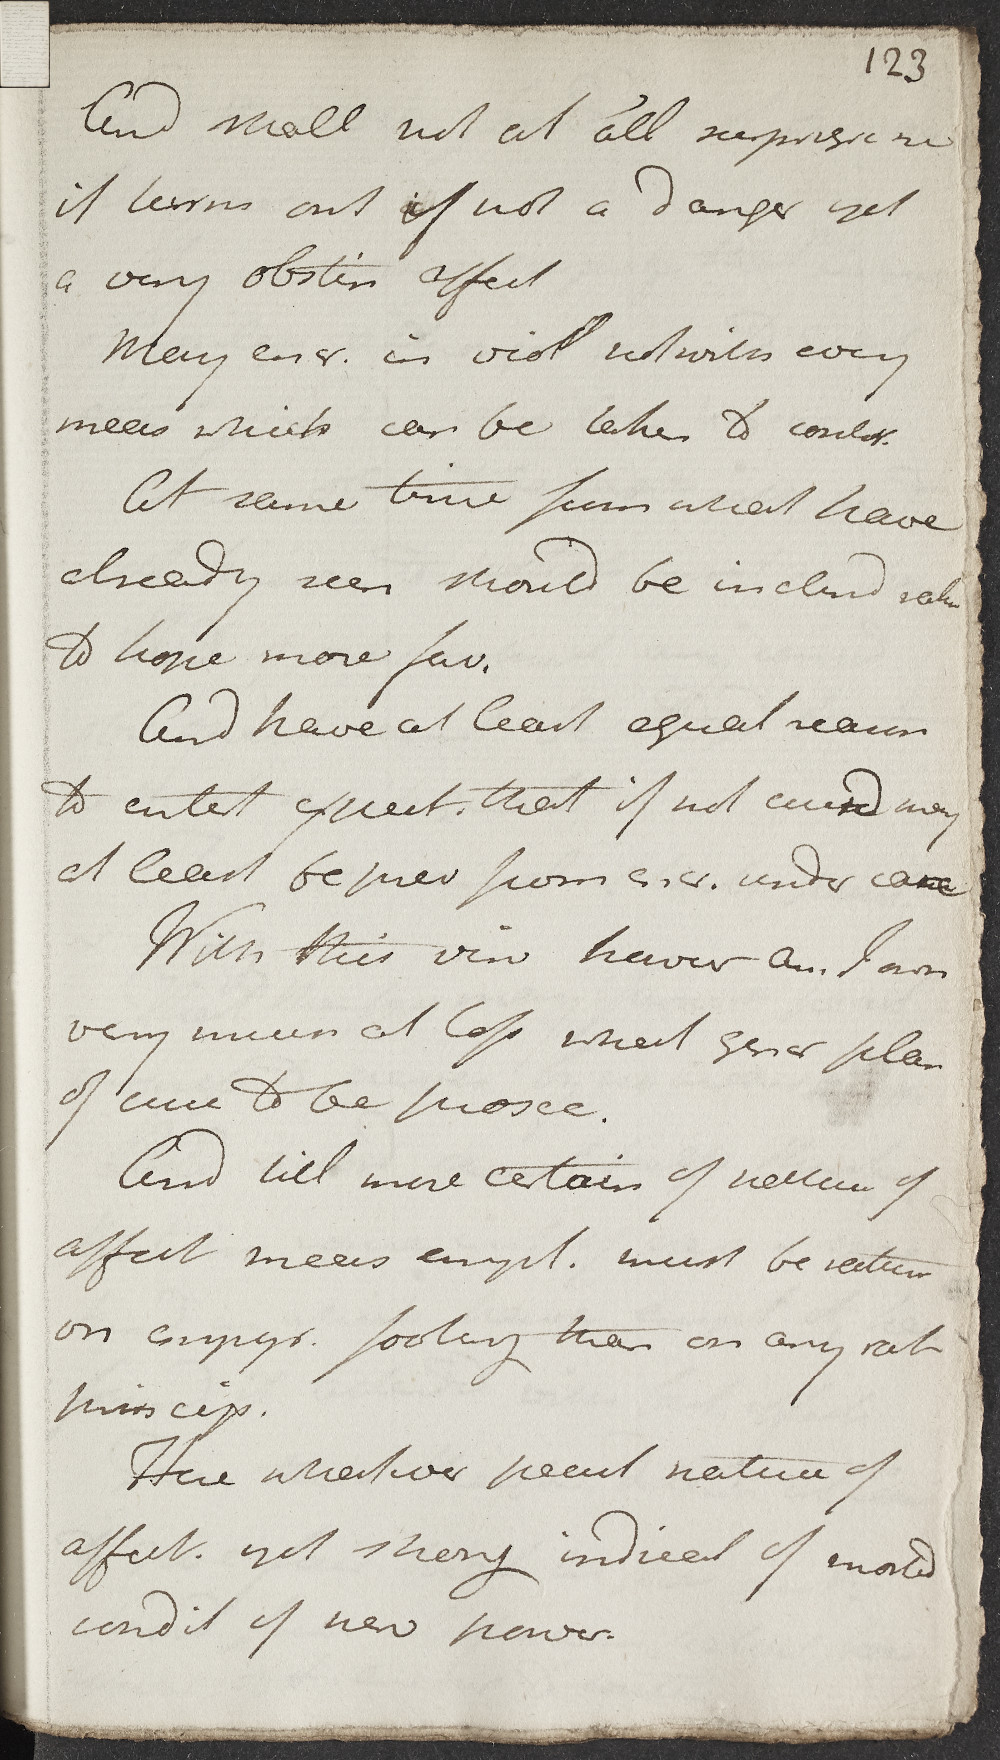 123
And shall not at all surprise me
if turns out if not a danger yet
a very obstin affect
May encr. in viol notwith every
meas which can be taken to counter.
At same time from what have
already seen should be inclind rath
to hope more fav.
And have at least equal reason
to entert expect. that if not curd may
at least be prev from encr. under care
With this view howev am. I own
very much at loss what gener plan
of cure to be prosec.
And till more certain of nature of
affect meas empl. must be rather
on empyr. footing than on any rat
princip.
Here whatever pecul nature of
affect. yet strong indicat of morbd
condit of nerv power.